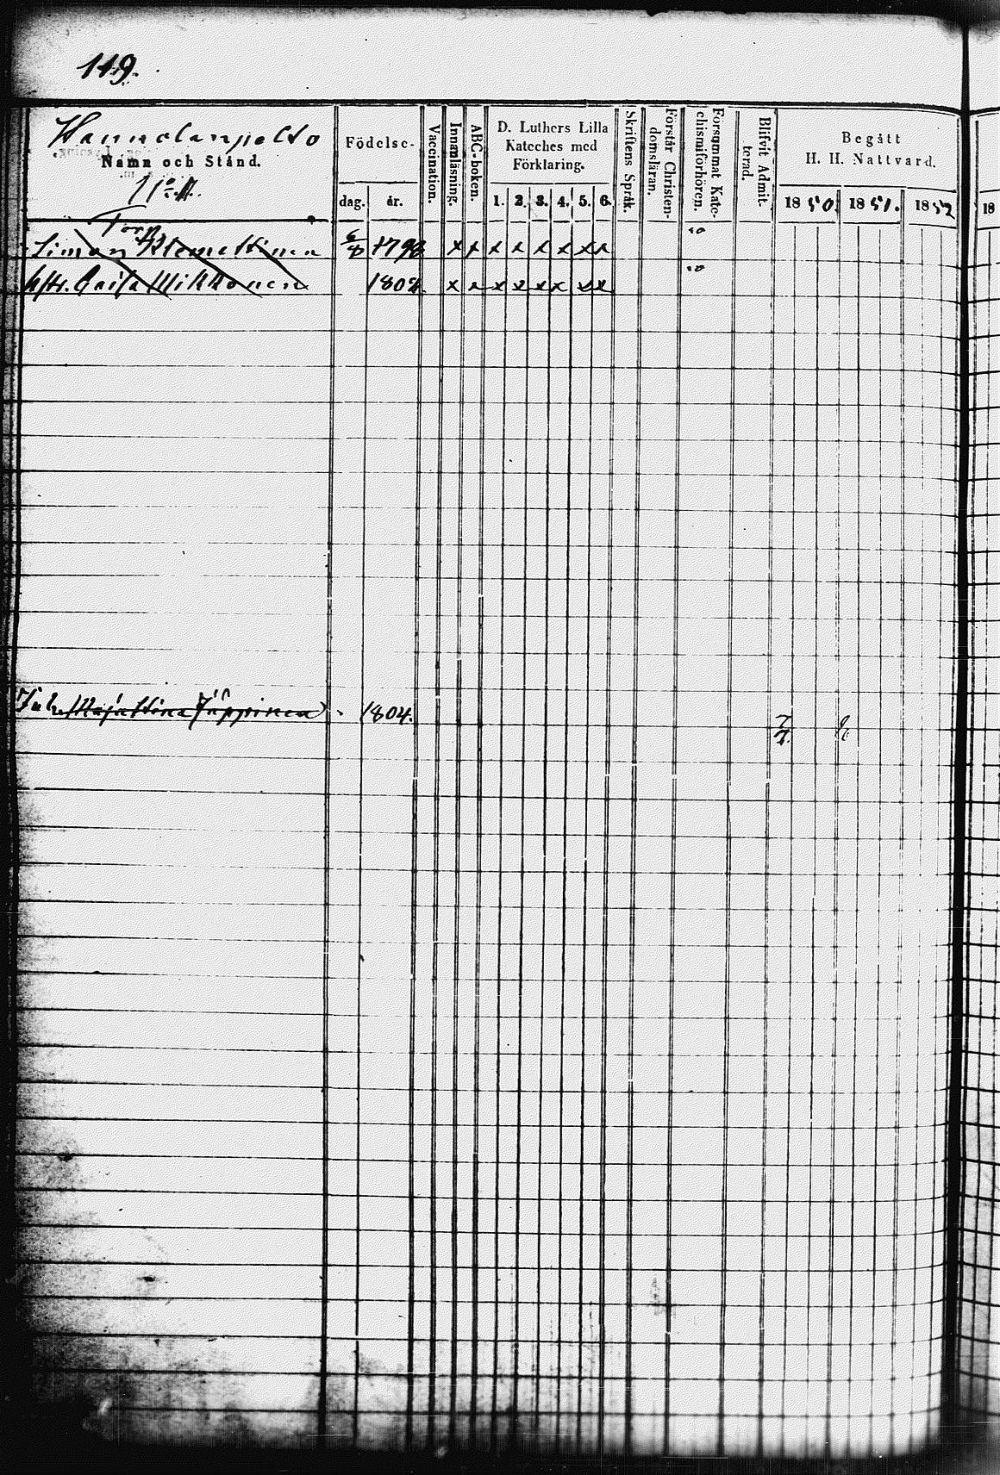 119.
Hannolanpelto
Namn och Stånd.
N:o 11.
Födelse-
dag. år.
Vaccination.
Innanläsning.
ABC-boken.
D. Luthers Lilla
Kateches med
Förklaring.
1. 2. 3. 4. 5. 6.
Skriftens Språk.
Förstår Christen-
domsläran.
Försummat Kate-
chismiförhören.
Blifvit Admit-
terad.
Begått
H. H. Nattvard.
1850. 1851. 1852
18
Torp.
Simon Klemettinen 6/8 1798 x x x x x x x x
hstr. Caisa Mikkonen 1802. x x x x x x x x
Enk. Maja Stina Jäppinen 1804. 7/7.